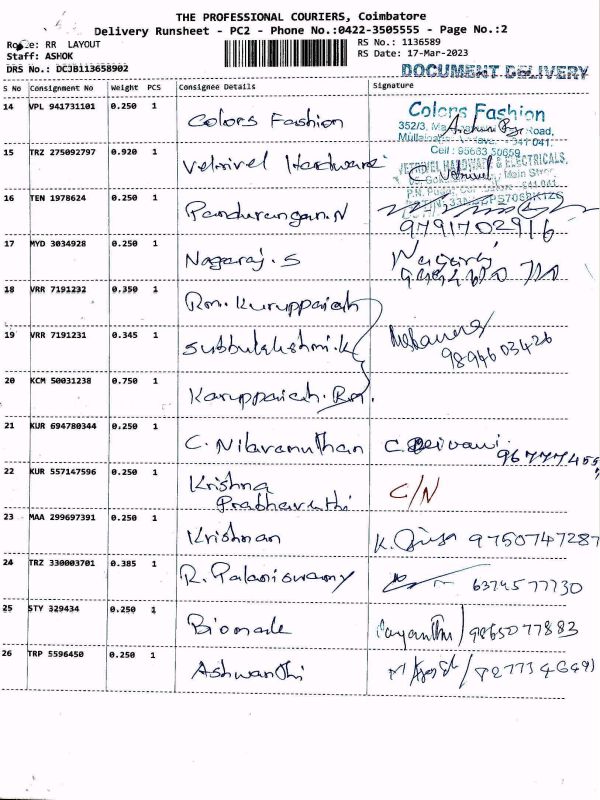 THE PROFESSIONAL COURIERS, Coimbatore
Delivery Runsheet - PC2 - Phone No.:0422-3505555 - Page No.:2
Route: RR LAYOUT
RS No.: 1136589
Staff: ASHOK
RS Date: 17-Mar-2023
DRS No.: DCJB113658902
DOCUMENT DELIVERY
S No Consignment No Weight PCS Consignee Details Signature
14 VPL 941731101 0.250 1 Colors Fashion
Colors Fashion
352/3, Road,
641 041.
Cell : 95663 50659
15 TRZ 275092797 0.920 1 Vetrivel Hardware
VETRIVEL HARDWARE & ELECTRICALS,
Main Street
C. Vetrivel
16 TEN 1978624 0.250 1 Pandurangan.N
9791702916
17 MYD 3034928 0.250 1 Nagaraj.S Nagaraj
18 VRR 7191232 0.350 1 Rm.Kuruppaiah
19 VRR 7191231 0.345 1 Subbulakshmi.K
9894603426
20 KCM 50031238 0.750 1 Karuppaiah.Rm.
21 KUR 694780344 0.250 1 C. Nilavanuthan C. Deivani.
22 KUR 557147596 0.250 1 Krishna
Prabhavathi C/N
23 MAA 299697391 0.250 1 Krishnan K. 9750747287
24 TRZ 330003701 0.385 1 R. Palaniswamy 6374577730
25 STY 329434 0.250 1 Biomade Jayanthi/9865077883
26 TRP 5596450 0.250 1 Ashwanthi